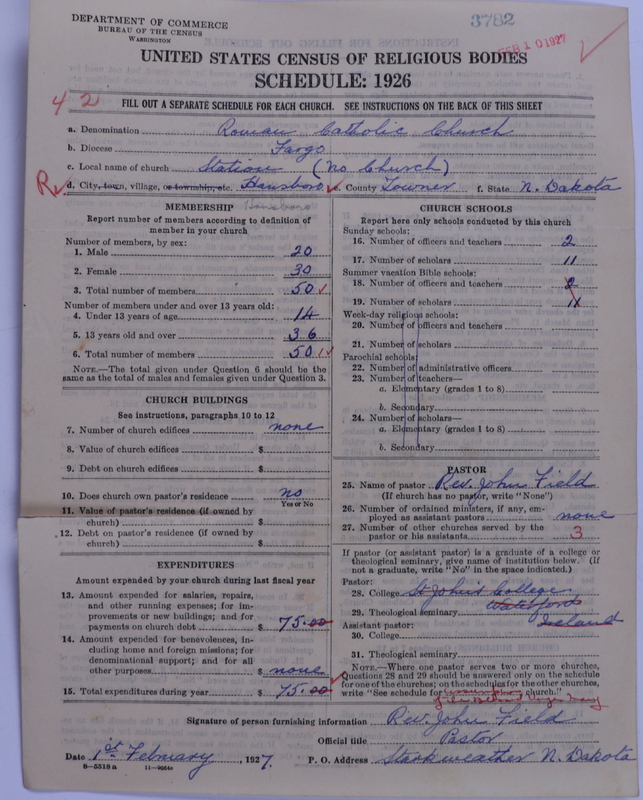 DEPARTMENT OF COMMERCE
BUREAU OF THE CENSUS
WASHINGTON
3782
FEB 10 1927
UNITED STATES CENSUS OF RELIGIOUS BODIES
SCHEDULE: 1926
4 2
FILL OUT A SEPARATE SCHEDULE FOR EACH CHURCH. SEE INSTRUCTIONS ON THE BACK OF THIS SHEET
a. Denomination Roman Catholic Church
b. Diocese Fargo
c. Local name of church Station (No Church)
R d. City, town, village, or township, etc. Hansboro e. County Towner f. State N. Dakota
Hansboro
MEMBERSHIP
Report number of members according to definition of
member in your church
Number of members, by sex:
1. Male 20
2. Female 30
3. Total number of members 50
Number of members under and over 13 years old:
4. Under 13 years of age 14
5. 13 years old and over 36
6. Total number of members 50
NOTE.—The total given under Question 6 should be
same as the total of males and females given under Question 3.
CHURCH BUILDINGS
See instructions, paragraphs 10 to 12
7. Number of church edifices none
8. Value of church edifices $
9. Debt on church edifices $
10. Does church own pastor's residence no
Yes or No
11. Value of pastor's residence (if owned by
church) $
12. Debt on pastor's residence (if owned by
church) $
EXPENDITURES
Amount expended by your church during last fiscal year
13. Amount expended for salaries, repairs,
and other running expenses; for im-
provements or new buildings; and for
payments on church debt $ 75.00
14. Amount expended for benevolences, in-
cluding home and foreign missions; for
denominational support; and for all
other purposes $ none
15. Total expenditures during year $ 75.00
CHURCH SCHOOLS
Report here only schools conducted by this church
Sunday schools:
16. Number of officers and teachers 2
17. Number of scholars 11
Summer vacation Bible schools:
18. Number of officers and teachers 2
19. Number of scholars 11
Week-day religious schools:
20. Number of officers and teachers
21. Number of scholars
Parochial schools:
22. Number of administrative officers
23. Number of teachers—
a. Elementary (grades 1 to 8)
b. Secondary
24. Number of scholars—
a. Elementary (grades 1 to 8)
b. Secondary
PASTOR
25. Name of pastor Rev. John Field
(If church has no pastor, write "None")
26. Number of ordained ministers, if any, em-
ployed as assistant pastors none
27. Number of other churches served by the
pastor or his assistants 3
If pastor (or assistant pastor) is a graduate of a college or
theological seminary, give name of institution below. (If
not a graduate, write "No" in the space indicated.)
Pastor:
28. College St John's College
29. Theological seminary Waterford
Assistant pastor: Ireland
30. College
31. Theological seminary
NOTE.—Where one pastor serves two or more churches,
Questions 28 and 29 should be answered only on the schedule
for one of the churches; on the schedules for the other churches,
write "See schedule for church."
Signature of person furnishing information Rev. John Field
Official title Pastor
Date 1st February, 1927. P. O. Address Starkweather N. Dakota
8—5518 a